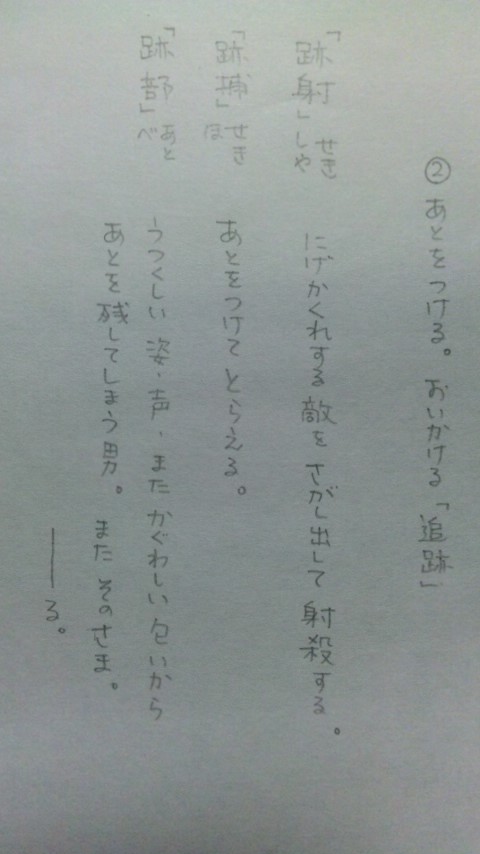 ②あとをつける。おいかける「追跡」
「跡射」せきしや にげかくれする敵をさがし出して射殺する。
「跡捕」せきほ あとをつけてとらえる。
「跡部」あとべ うつくしい姿・声・またかぐわしい匂いから
あとを残してしまう男。またそのさま。
――る。